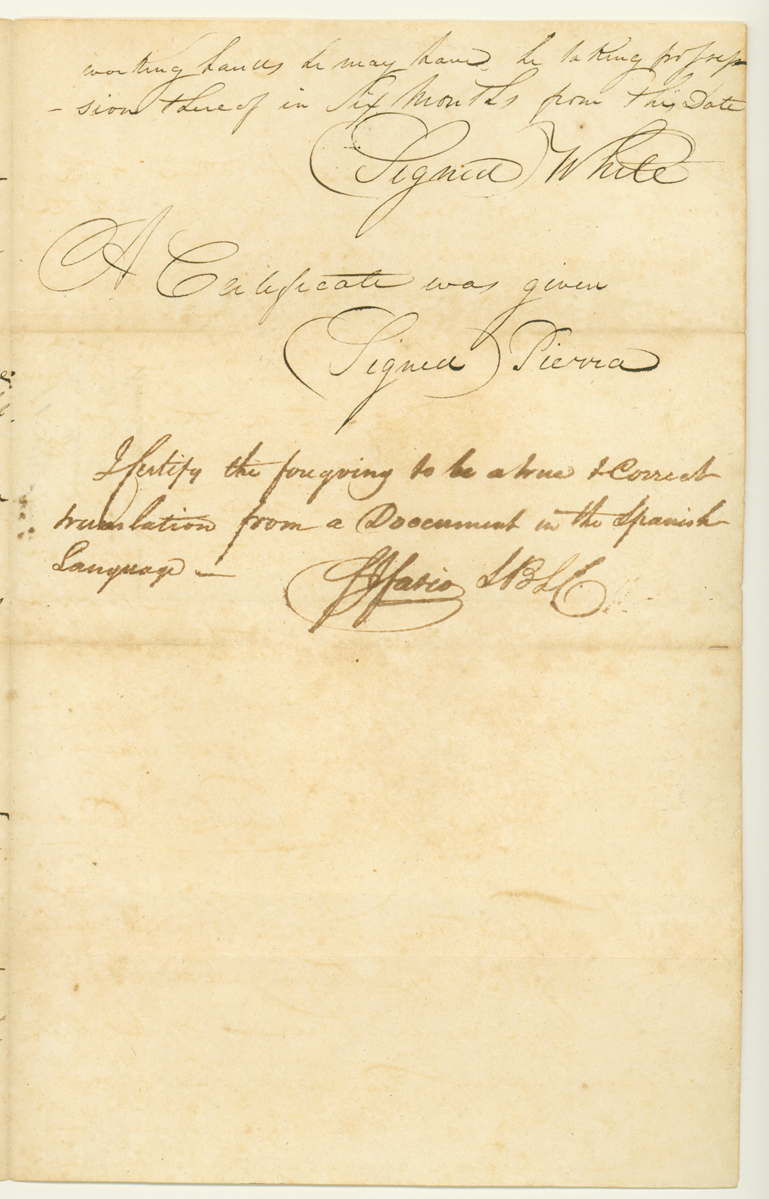 working hands he may have, he taking posses
- sion thereof in Six Months from this Date
(Signed) White
A Certificate was given
(Signed) Pierra
I Certify the foregoing to be a true & Correct
translation from a Document in the Spanish
Language —
F J Fatio S B L C